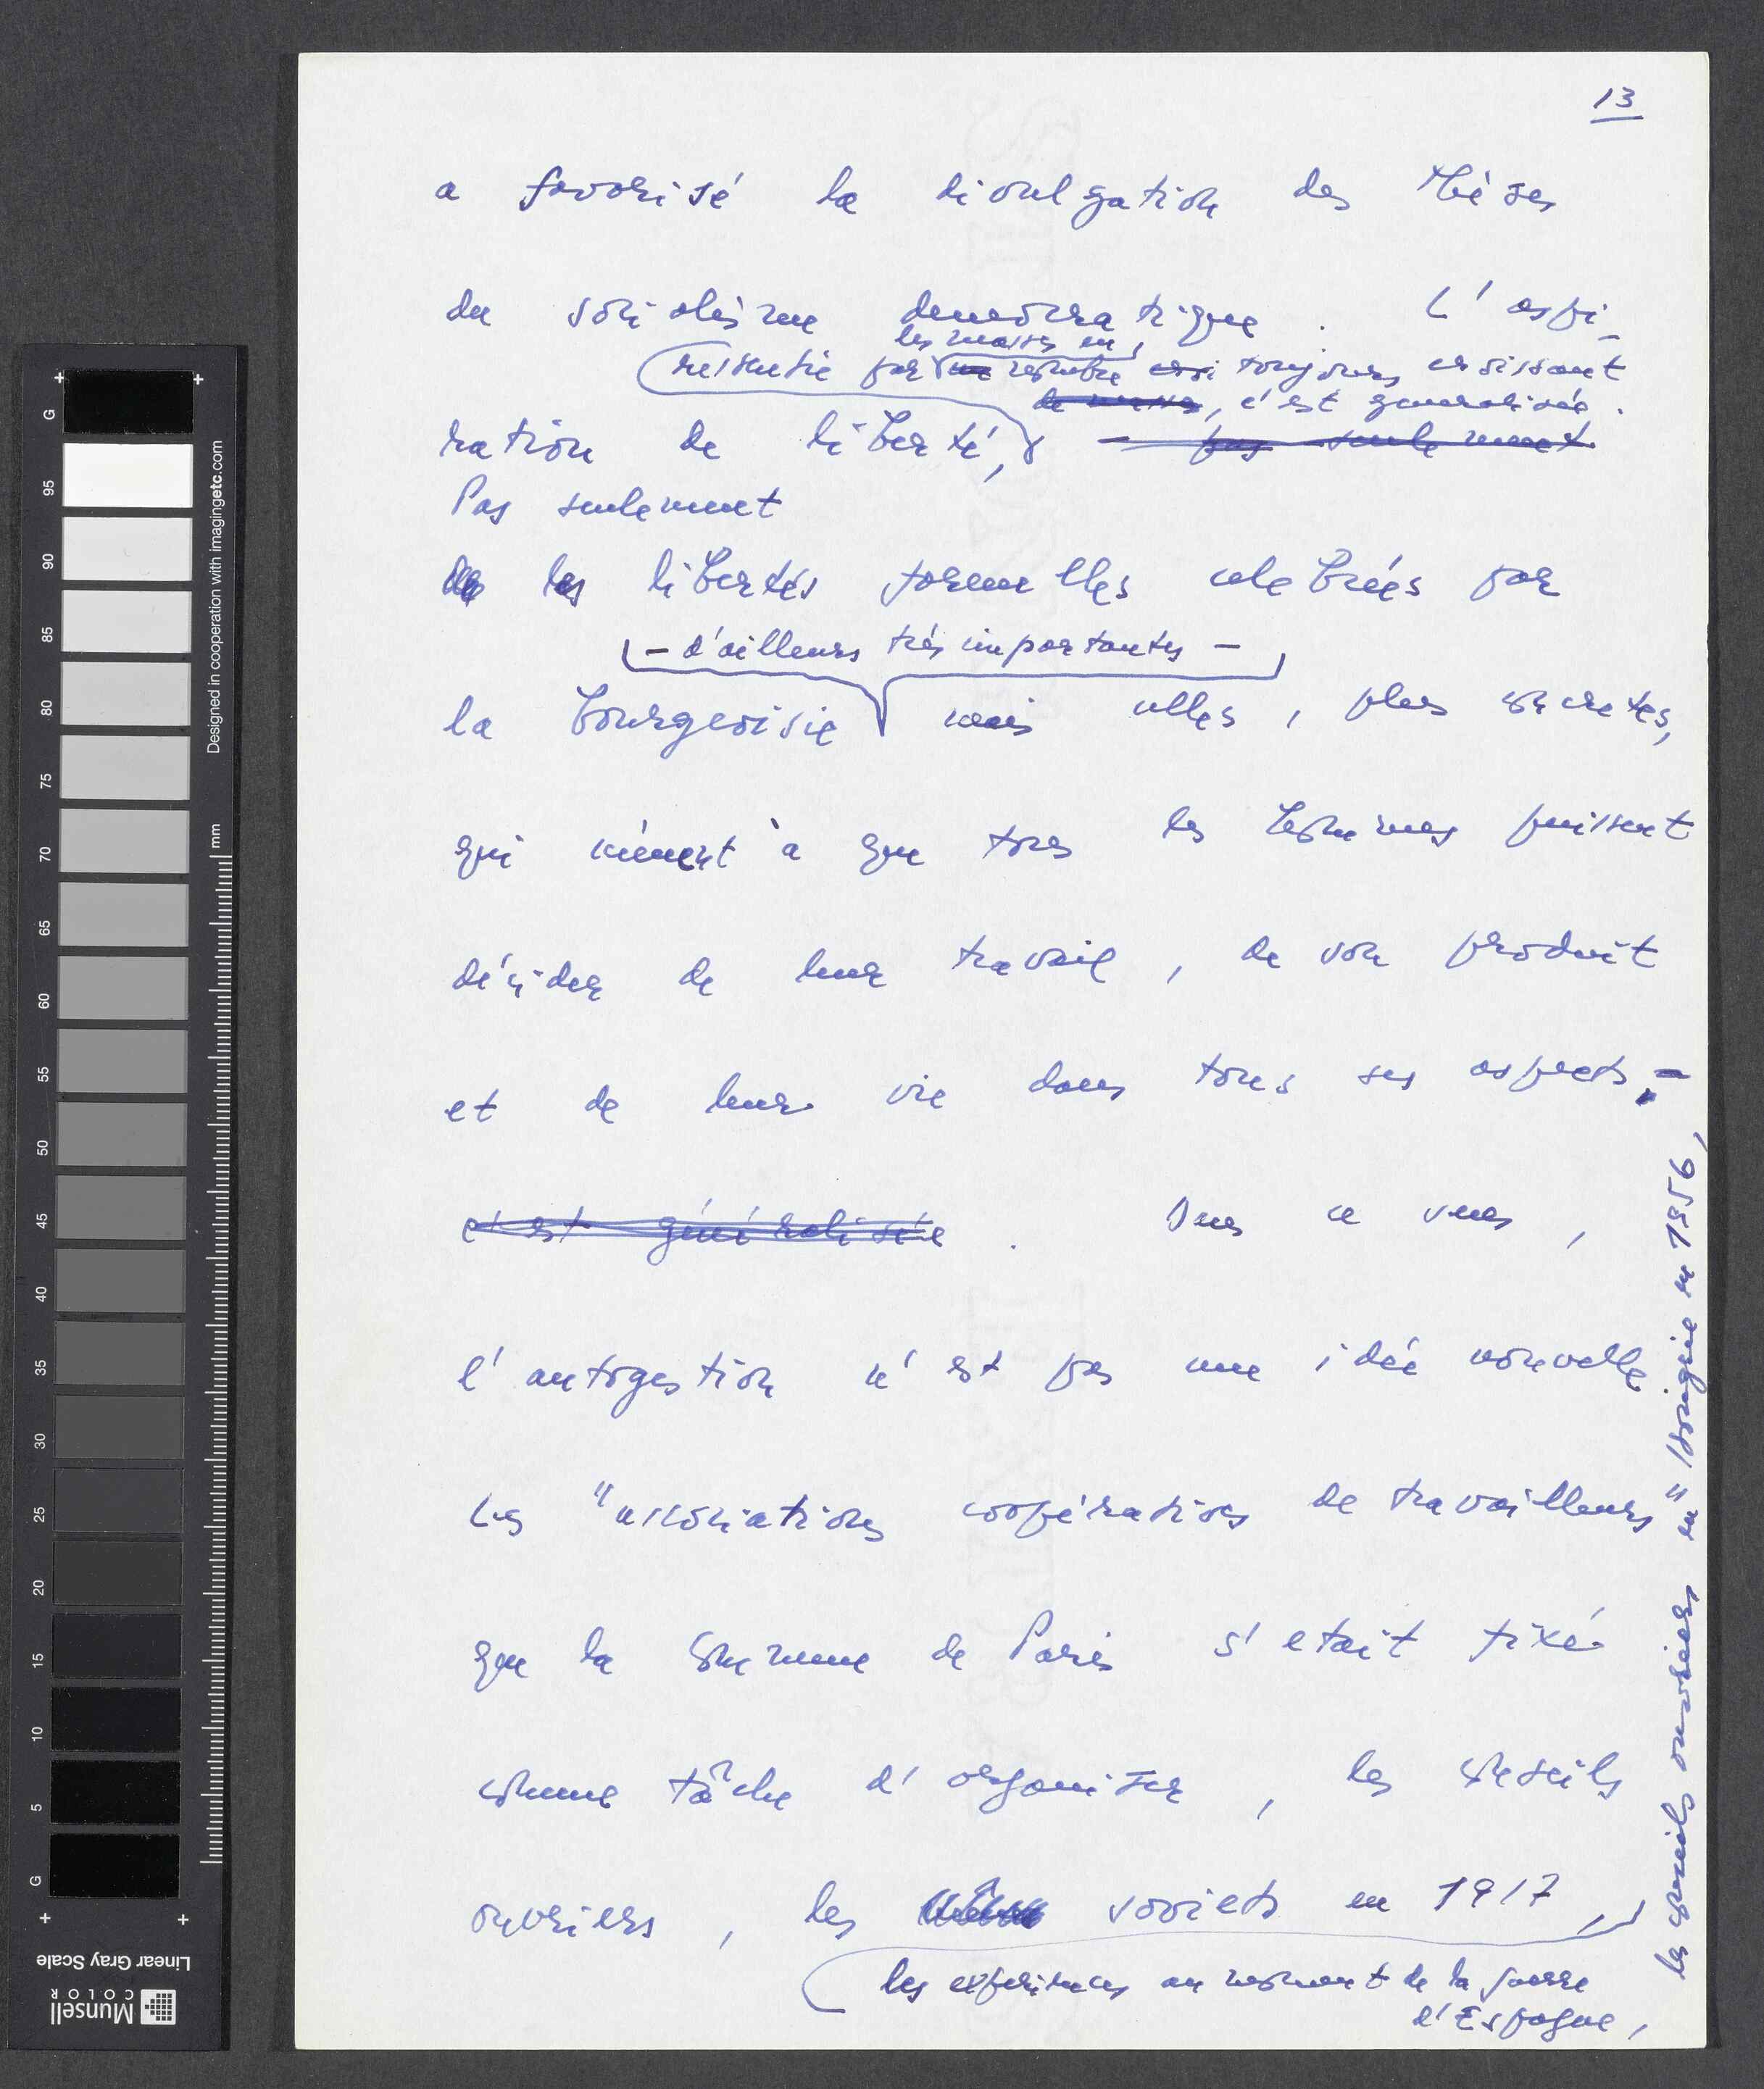 13
a favorisé la divulgation des thèses
du socialisme democratique. L'aspi-
les masses en
ressentie par nombre toujours croissant
de masses, s'est generalisée.
ration de liberté, — pas seulement
Pas seulement
les libertés formelles celebrées par
— d'ailleurs très importantes —
la bourgeoisie mais celles, plus concretes,
qui mènent à que tous les hommes puissent
décider de leur travail, de son produit
et de leur vie dans tous ses aspects.
s'est généralisée. Dans ce sens,
l'autogestion n'est pas une idée nouvelle.
Les "associations coopératives de travailleurs"
que la Commune de Paris s'etait fixé
comme tâche d'organiser, les conseils
ouvriers, les soviets en 1917,
les expériences au moment de la guerre
d'Espagne,
les conseils ouvriers en Hongrie en 1956,
Designed in cooperation with imagingetc.com
mm
G
95
90
85
80
75
70
65
60
55
50
45
40
35
30
25
20
15
10
5
G
Linear Gray Scale
Munsell
COLOR